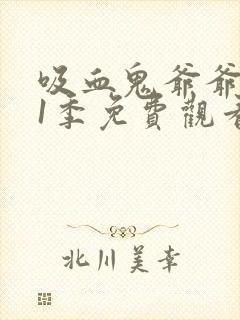 吸血鬼爷爷
1季免費觀看
北川美幸